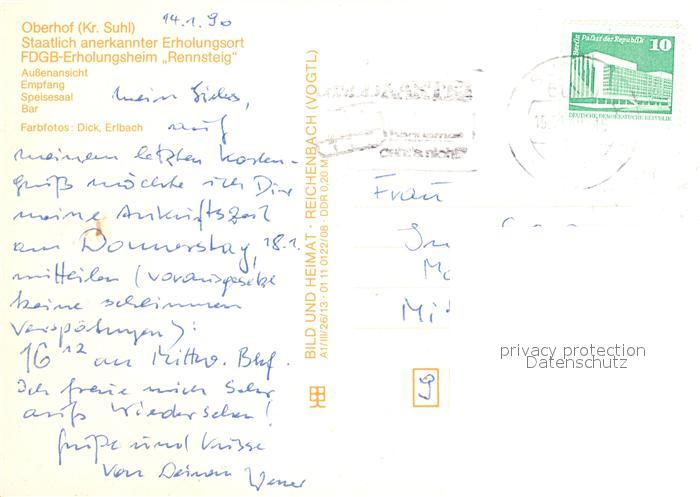 14.1.90
Oberhof (Kr. Suhl)
Staatlich anerkannter Erholungsort
FDGB-Erholungsheim „Rennsteig"
Außenansicht
Empfang
Speisesaal
Bar
Farbfotos: Dick, Erlbach
mein Liebes,
auf
meinem letzten Karten-
gruß möchte ich Dir
meine Ankunftszeit
am Donnerstag, 18.1.
mitteilen (vorausgesetzt
keine schlimmen
Verspätungen):
16 12 an Mittw. Bhf.
Ich freue mich sehr
aufs Wiedersehen!
Grüße und Küsse
von Deinem
BILD UND HEIMAT · REICHENBACH (VOGTL)
A1/III/26/13 · 01 11 0122/08 · DDR 0,20 M
Berlin Palast der Republik
10
DEUTSCHE DEMOKRATISCHE REPUBLIK
Frau
9
privacy protection
Datenschutz